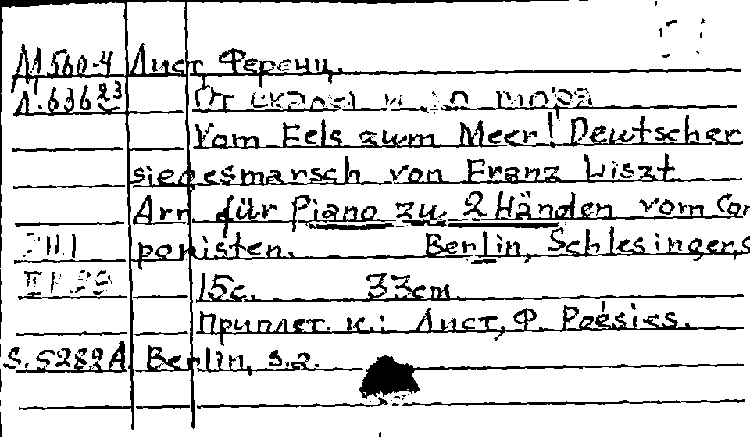 М560-4 Лист, Ференц.
Л-63623 От скалы и до моря
Vom Fels zum Meer! Deutscher
siegesmarsch von Franz Liszt.
Arr für Piano zu 2 Händen vom Com
ponisten. Berlin, Schlesinger, s
15с. 33cm.
Приплет. к.: Лист, Ф. Poésies.
S.5282A Berlin, s.a.